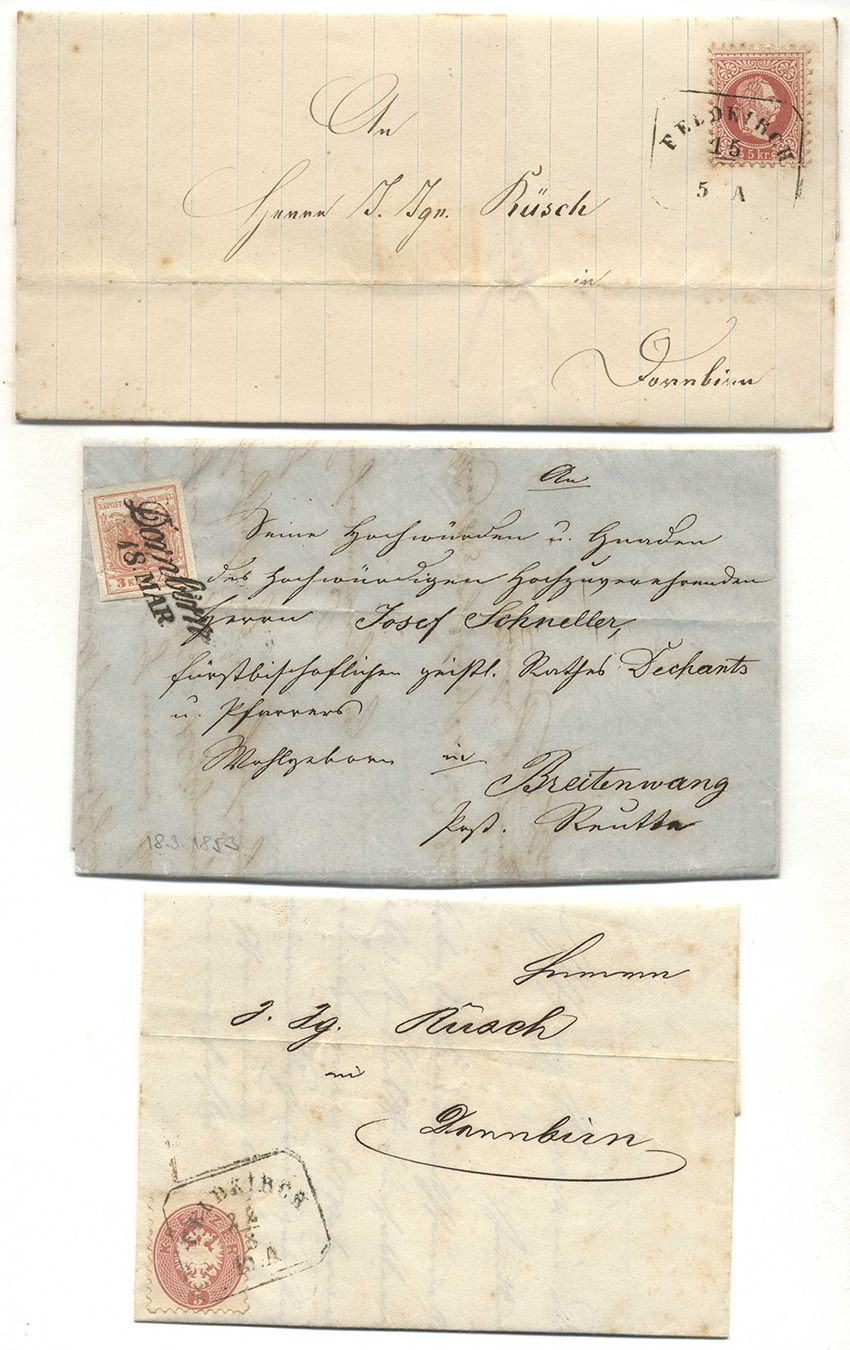 An
Herrn J. Ign. Rüsch
in
Dornbirn
5 kr.
FELDKIRCH
15
5 A
An
Seine Hochwürden u. Gnaden
des hochwürdigen Hochzuverehrenden
Herrn Josef Schneller,
fürstbischoflichen geistl. Rathes Dechants
u. Pfarrers
Wohlgeborn in
Breitenwang
Post. Reutte
3 K
Dornbirn
18. MAR.
18.3.1853
Herren
J. Ig. Rüsch
in
Dornbirn
FELDKIRCH
5.A
5